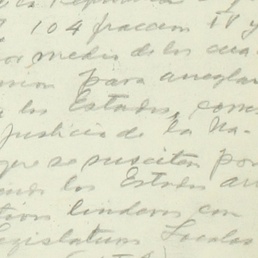 104 fraccion IV y
por medio de los cua
para arreglar
los Estados, corres
Justicia de la Na-
que se suscitan por
los Estados arr
linderos con
Legislaturas Locales